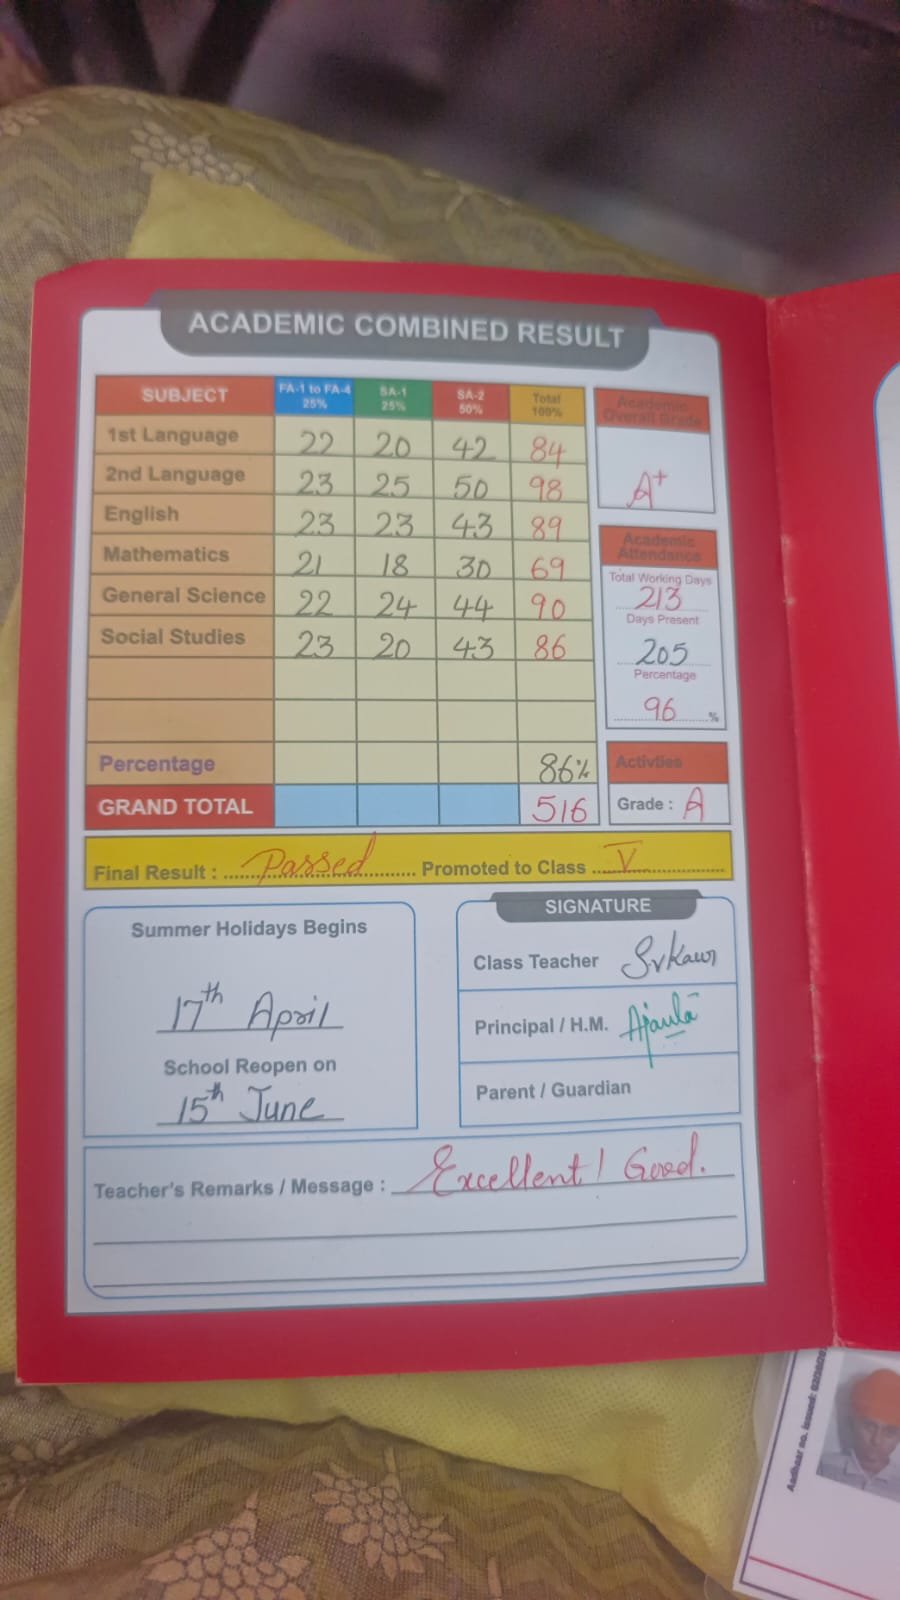 ACADEMIC COMBINED RESULT
SUBJECT FA-1 to FA-4 25% SA-1 25% SA-2 50% Total 100%
1st Language 22 20 42 84
2nd Language 23 25 50 98
English 23 23 43 89
Mathematics 21 18 30 69
General Science 22 24 44 90
Social Studies 23 20 43 86
Percentage 86%
GRAND TOTAL 516
Academic
Overall Grade
A+
Academic
Attendance
Total Working Days
213
Days Present
205
Percentage
96 %
Activties
Grade : A
Final Result : Passed Promoted to Class V
Summer Holidays Begins
17th April
School Reopen on
15th June
SIGNATURE
Class Teacher
Principal / H.M.
Parent / Guardian
Teacher's Remarks / Message : Excellent! Good.
Aadhaar no. issued: